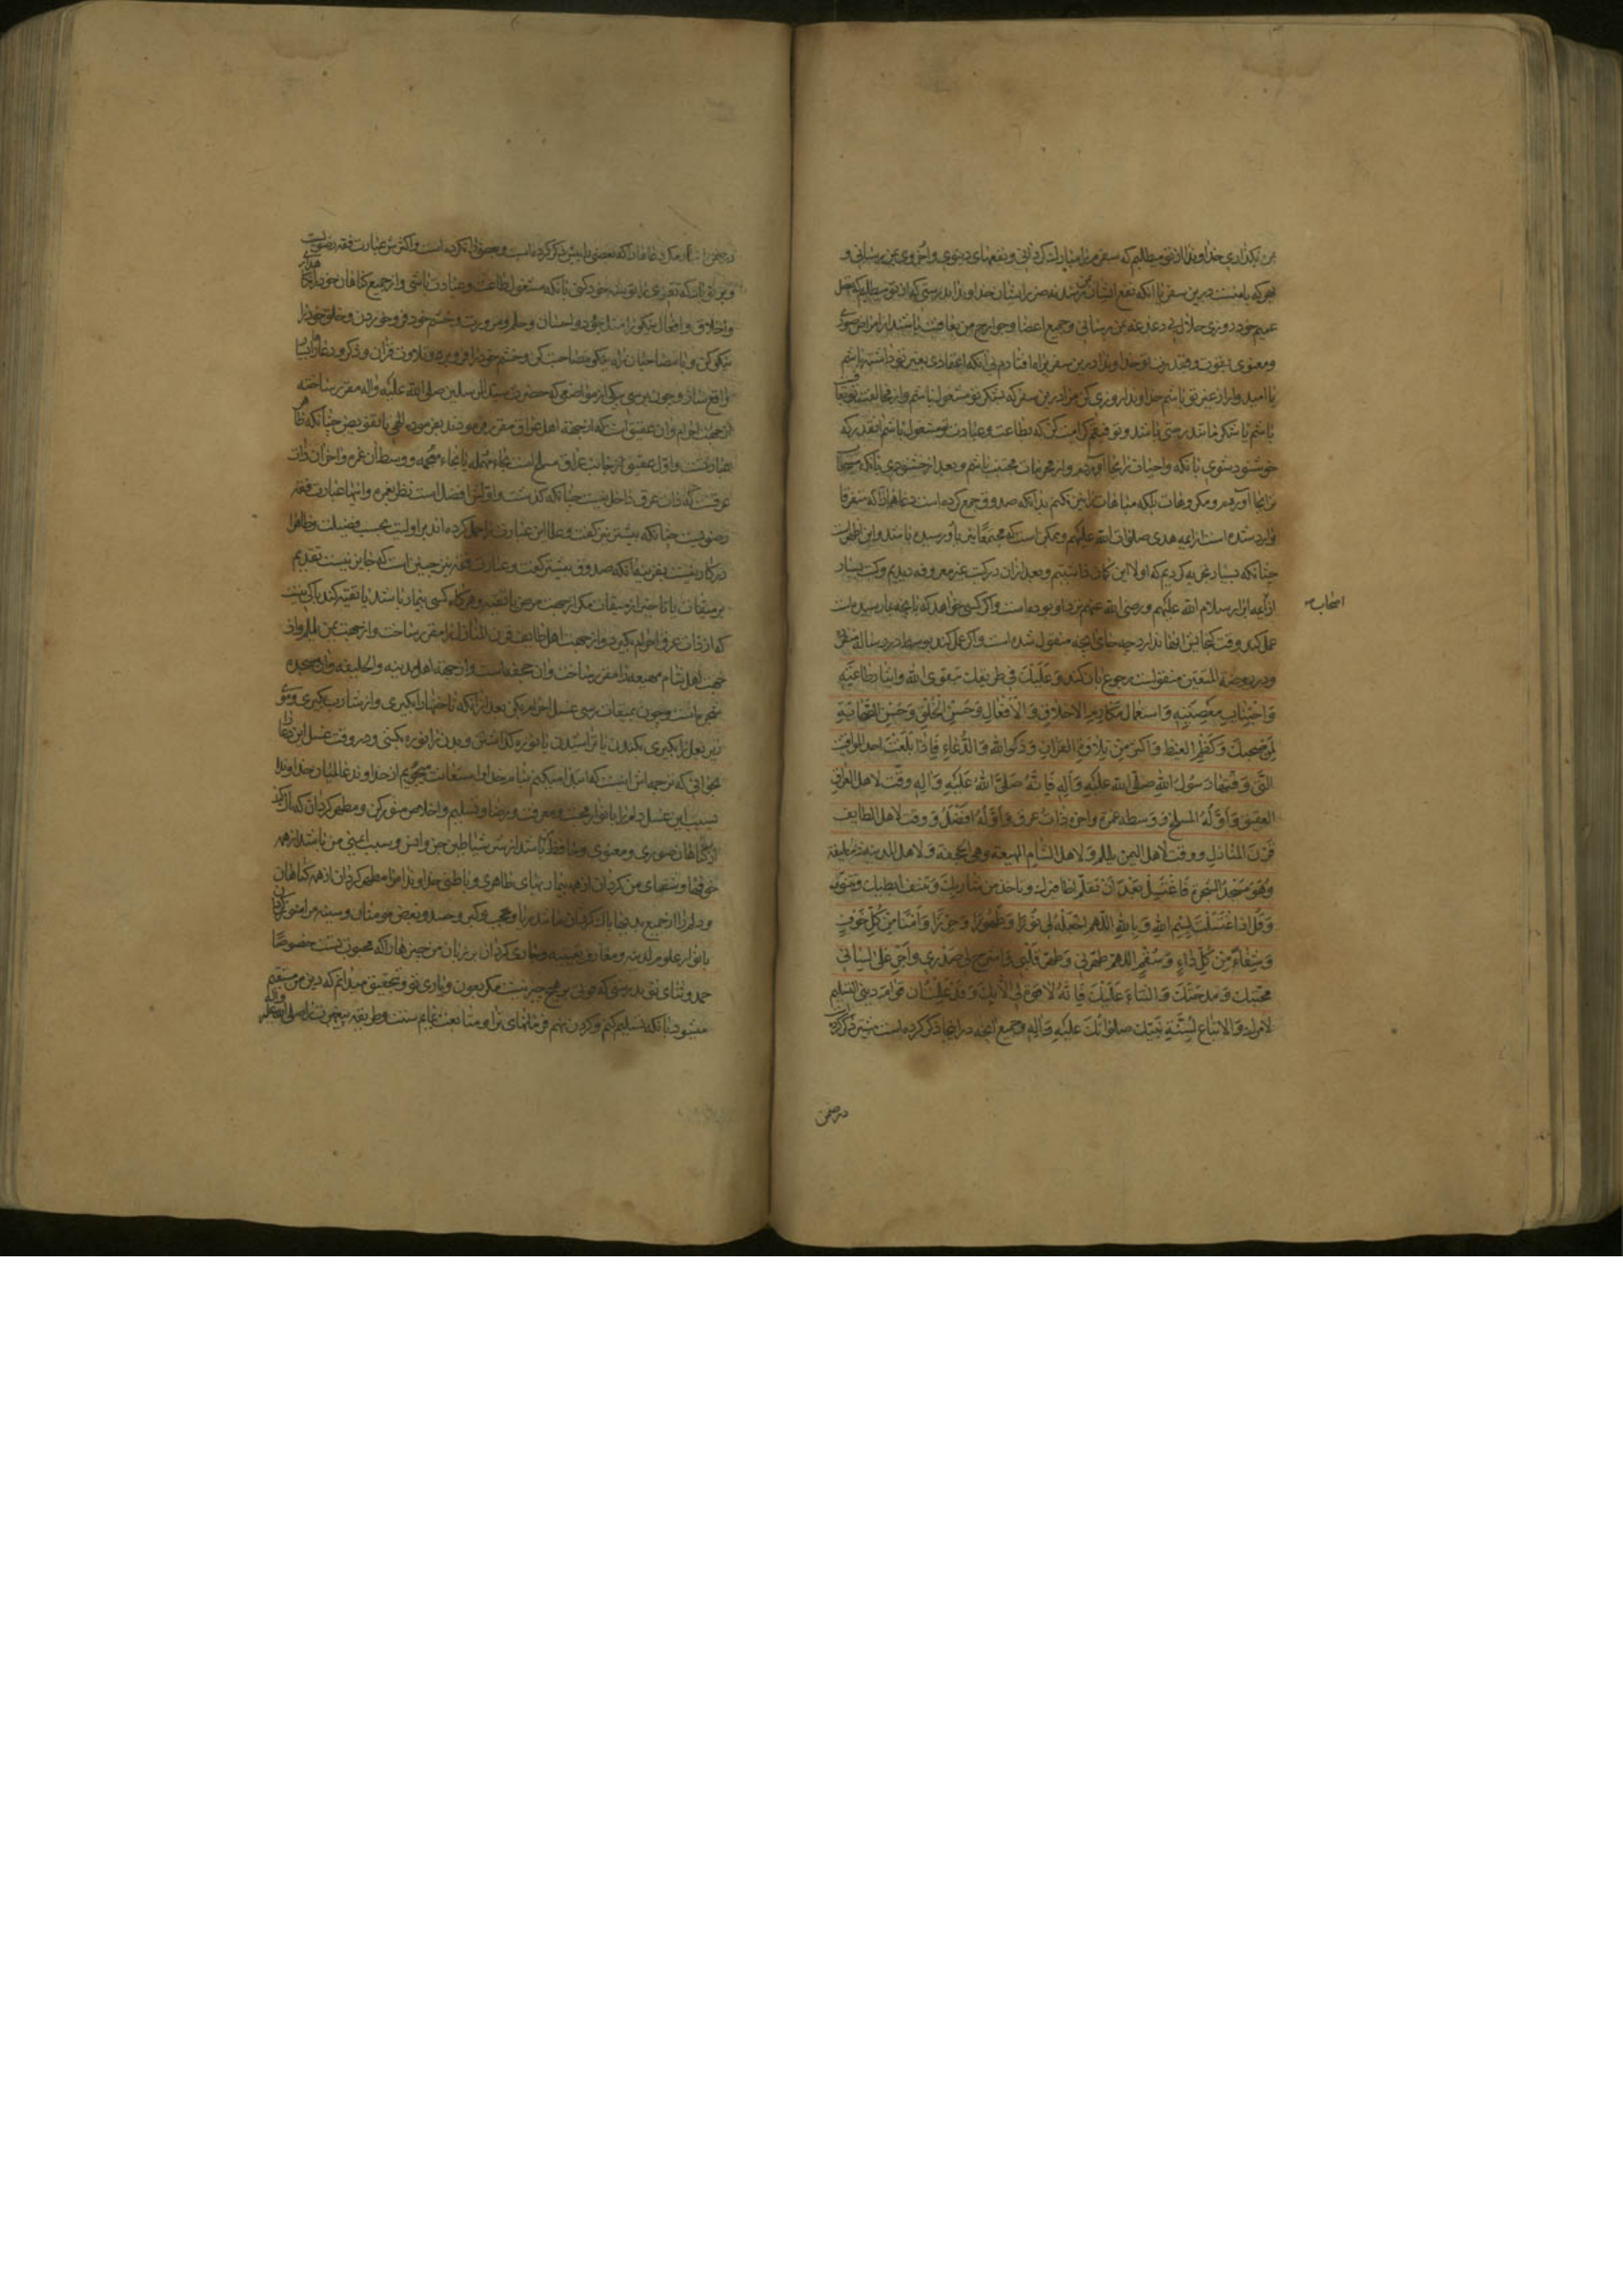 من بگذاری خداوندا از تو میطلبم که سفر مرا مبارک گردانی و نفعهای دنیوی و اخروی بمن رسانی و
هر که با منست درین سفر با آنکه نفع ایشان بمن رسد نه ضرر ایشان خداوندا بدرستی که از تو میطلبم که
عمیم خود روزی حلال بی دغدغه بمن رسانی و جمیع اعضا و جوارح من بعافیت باشند از امراض صوری
و معنوی بقوت و قدرت تو خداوندا درین سفر براه افتادم بی آنکه اعتمادی بغیر تو داشته باشم
یا امیدوار از غیر تو باشم خداوندا روزی کن مرا درین سفر که بشکر تو مشغول باشم و از مخالفت تو
باشم با شکر مانند درستی باشد و توفیقم کرامت کن که بطاعت و عبادت تو مشغول باشم بقدری که
خوشنود شوی بآنکه واجبات را بجا آورم و از محرمات مجتنب باشم و بعد از خشنودی بآنکه
را بجا آورم و مکروهات بلکه مباحات را نیز نکنم بدانکه صدوق جمع کرده است دعاهائی را که متفرقا
وارد شده است از ایمه هدی صلوات الله علیهم و ممکن است که مجتمعا نیز باو رسیده باشد و این اظهر است
چنانکه بسیار تجربه کردیم که اولا این کمان داشتیم و بعد از آن در کتب غیر معروفه دیدیم و کتب بسیار
از ایمه ابرار سلام الله علیهم و رضی الله عنهم نزد او بوده است و اگر کسی خواهد که بآنچه بما رسیده است
اصحاب
عمل کند وقت کنجایش اینها ندارد چه جای آنچه منقول شده است و اگر عمل کند بوسط در رساله
و در روضة المتقین منقولست رجوع بآن کند وَعَلَیْكَ فی طریقك بتقوی الله وایثار طاعته
وَاجْتِنابِ مَعْصِیَتِهِ وَاسْتِعْمالِ مَکارِمِ الاَخلاقِ وَالاَفْعالِ وَحُسْنِ الْخُلْقِ وَحُسْنِ الصَّحابَةِ
لِمَنْ صَحِبَكَ وَكَظْمِ الغیظ وَاكثر مِنْ تِلاوَةِ القُرآنِ وَذِكرِ الله وَالدُّعاءِ فَاِذا بَلَغْتَ احد المواقیت
التّی وَقّتها رَسُولُ اللهِ صلّی الله علیه وَآلِهِ فَاِنَّهُ صَلَّی اللهُ عَلَیْهِ وَآلِهِ وقّت لاهل العراق
العقیق وَاَوَّلُهُ المسلخ وَوسطه غمرة واخره ذاتُ عرق وَاَوَّلُهُ اَفْضَلُ وَ وقت لاهل الطایف
قَرْنَ المَنازلِ و وقت لاهل الیمن یلملم وَلاهل الشام المهیعة وهی الجحفة وَلاهل المدینة ذا الحلیفة
وَهُوَ مَسْجِدُ الشجرة فَاغْتَسِلْ بَعْدَ اَنْ تقلّم اظافیرك وتاخذ من شاربك وَتنتف ابطیك وتتنوّر
وَقُلْ اِذا اغْتَسَلْتَ بِسْمِ اللهِ وَبِاللهِ اللّهم اجْعَلْهُ لی نُورًا وَطَهُورًا وَحِرْزًا وَاَمْنًا مِنْ كُلِّ خَوْفٍ
وَشِفاءً مِنْ كُلِّ داءٍ وَسُقْمٍ اللّهم طَهِّرنی وَطهّر قَلْبی وَاشرح لی صَدْری وَاَجْرِ عَلی لسانی
محبّتك وَمدحتك وَالثناء عَلَیْكَ فَاِنَّهُ لا قوّة لی الّا بِك وَقد علمت ان قوام دینی التسلیم
لامرك وَالاتباع لِسُنّةِ نَبِیّك صلواتك علیه وَآلِه و جمیع آنچه در اینجا ذکر کرده است بیشتر ذکر کرد
در ضمن
در ضمن اخبار مکر دعاها را که بعضی را پیش ذکر کرده است و بعضی را نکرده است و اکثرش عبارت فقه رضویست
و بر تو باد که تقوی را توشه خود کنی بآنکه مشغول طاعت و عبادت باشی و از جمیع گناهان خود را نگاه
و اخلاق و افعال نیکو را مثل جود و احسان و حلم و مروت و خشم خود فرو خوردن و خلق خود را
نیکو کن و با مصاحبان راه نیکو مصاحبت کن و خشم خود را فرو بر و تلاوت قرآن و ذکر و دعا را بسیار
واقع ساز و چون برسی بیکی از مواضعی که حضرت سید المرسلین صلی الله علیه و آله مقرر ساخته
از جهت احرام و آن عقیق است که از جهة اهل عراق مقرر فرمودند بفرموده الهی یا بتفویض چنانکه ظاهر
عبارتست و اول عقیق از جانب عراق مسلخ است بحاء مهمله یا بخاء معجمه و وسط آن غمره و آخر آن ذات
عرقست که ذات عرق داخل نیست چنانکه گذشت و اولش افضل است نظر بغمره و انتها عبارت فقه
رضویست چنانکه پیشتر نیز گفت و علما این عبارت را حمل کرده اند بر اولیت بحسب فضیلت و ظاهرا
در کار نیست بقرینه آنکه صدوق پیشتر گفت و عبارت فقه نیز چنین است که جایز نیست تقدیم
بر میقات یا تاخیر از میقات مگر از جهت مرض یا تقیه و هرگاه کسی بیمار باشد یا تقیه کند باکی نیست
که از ذات عرق احرام بگیرد و از جهت اهل طایف قرن المنازل را مقرر ساخت و از جهت یمن یلملم و از
جهت اهل شام مهیعه را مقرر ساخت و آن جحفه است و از جهة اهل مدینه ذو الحلیفه و آن مسجد
شجره است و چون بمیقات رسی غسل احرام بکن بعد از آنکه ناخنها را بگیری و از شارب بگیری و موی
زیر بغل را بگیری بکندن یا تراشیدن یا نوره گذاشتن و بدن را نوره بکشی و در وقت غسل این دعا
بخوانی که ترجمه اش اینست که ابتدا میکنم بنام خدا و استعانت میجویم از خداوند عالمیان خداوندا
بسبب این غسل دلم را بانوار محبت و معرفت و رضا و تسلیم و اخلاص منور کن و مطهر گردان که پاک کند
از گناهان صوری و معنوی و محافظ باشد از شر شیاطین جن و انس و سبب ایمنی من باشد از همه
خوفها و شفای من گردان از همه بیماریهای ظاهری و باطنی خداوندا مرا مطهر گردان از همه گناهان
و دلم را از جمیع بدیها پاک گردان مانند ریا و عجب و کبر و حسد و بغض مومنان و سینه مرا منور گردان
بانوار علوم لدنیه و معارف یقینیه و جاری گردان بر زبان من چیزهائی را که محبوب تست خصوصا
حمد و ثنای تو بدرستی که قوتی بر هیچ چیز نیست مگر بعون و یاری تو و بتحقیق میدانم که دین من مستقیم
میشود بآنکه تسلیم کنم و گردن نهم فرمانهای ترا و متابعت نمایم سنت و طریقه پیغمبرت را صلی الله علیه و آله